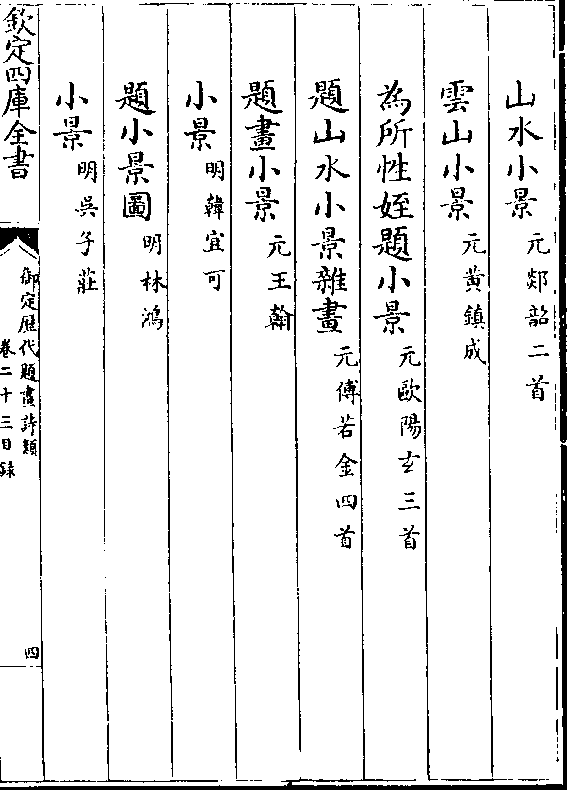 山水小景元郯韶二首
雲山小景元黄鎮成
為所性姪題小景元歐陽玄三首
題山水小景雜畫元傅若金四首
題畫小景元王翰
小景明韓宜可
題小景圖明林鴻
小景明吳子莊
欽定四庫全書
御定歷代題畫詩類
卷二十三目録
四